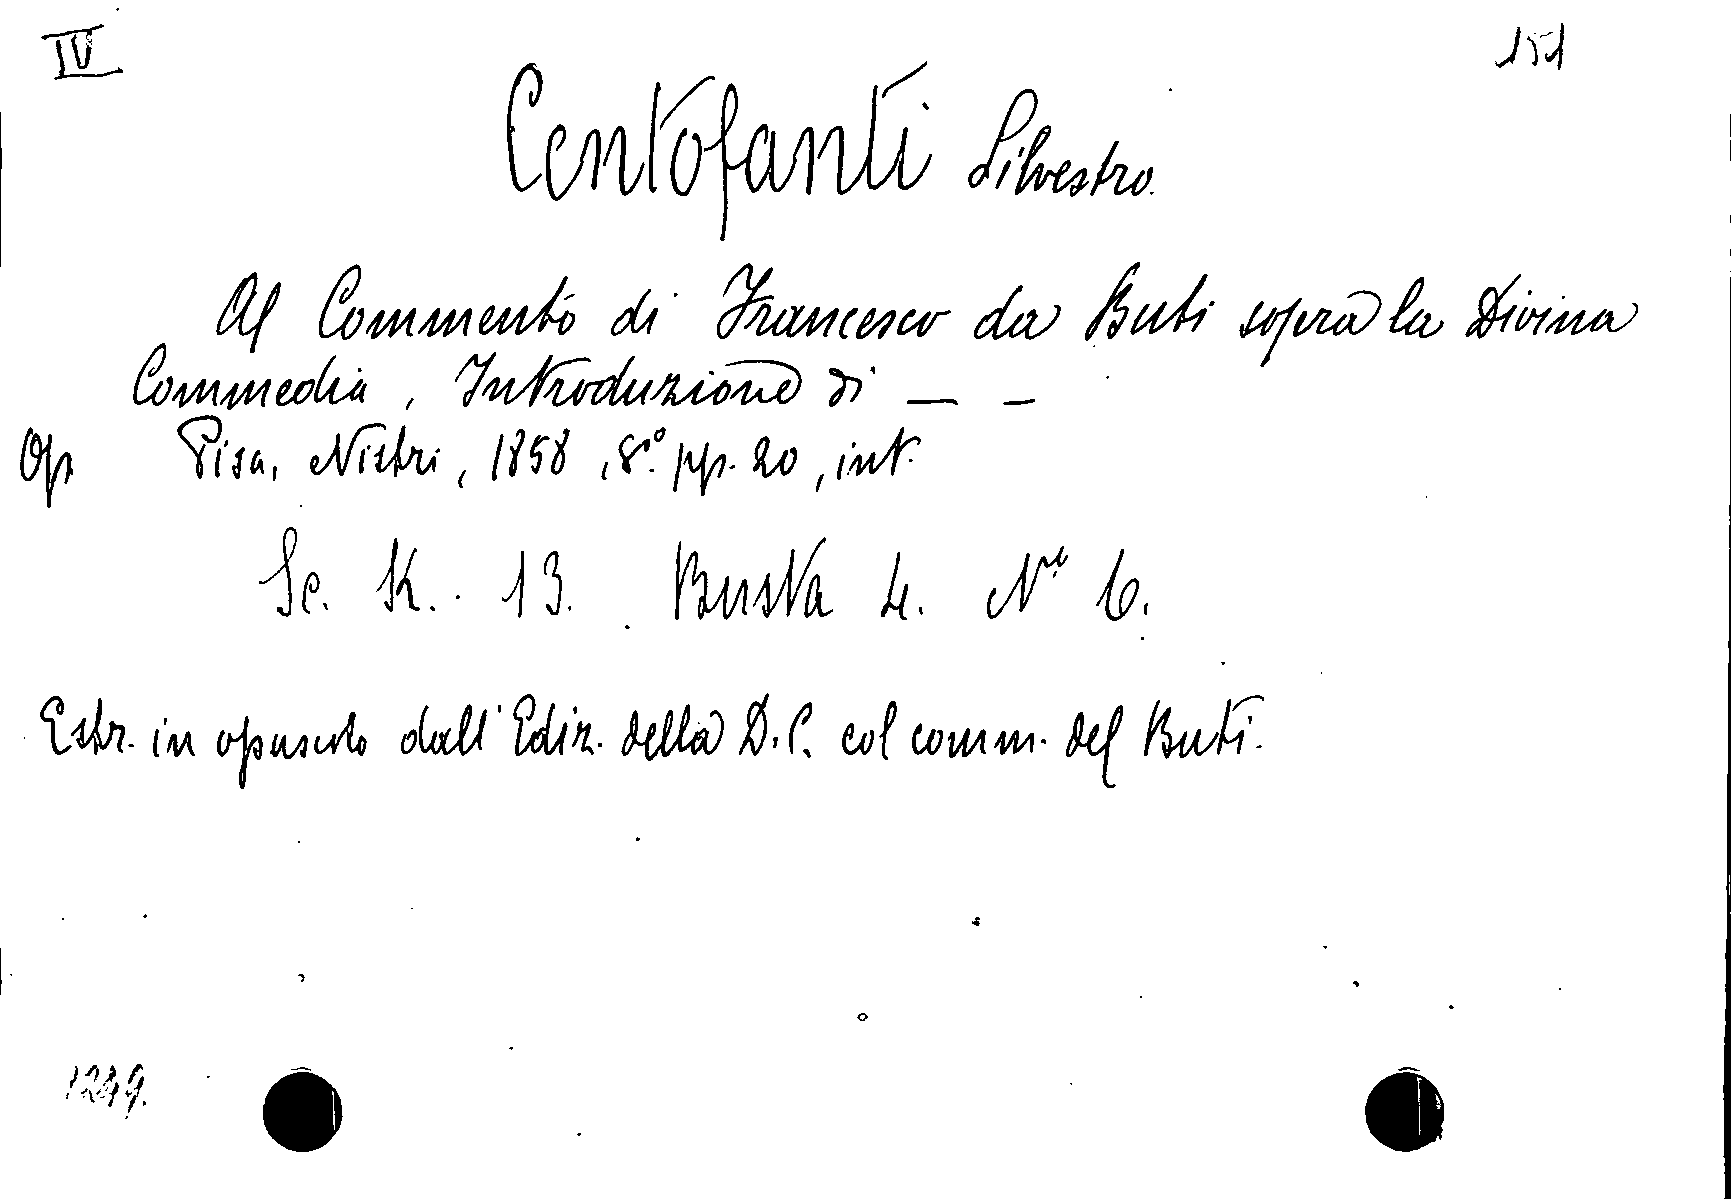 IV
151
Centofanti Silvestro.
Al Commento di Francesco da Buti sopra la Divina
Commedia, Introduzione di — —
Op Pisa, Nistri, 1858, 8º. pp. 20, int.
Sc. K. 13. Busta 4. Nº 6.
Estr. in opuscolo dall'Ediz. della D. C. col comm. del Buti.
1249.